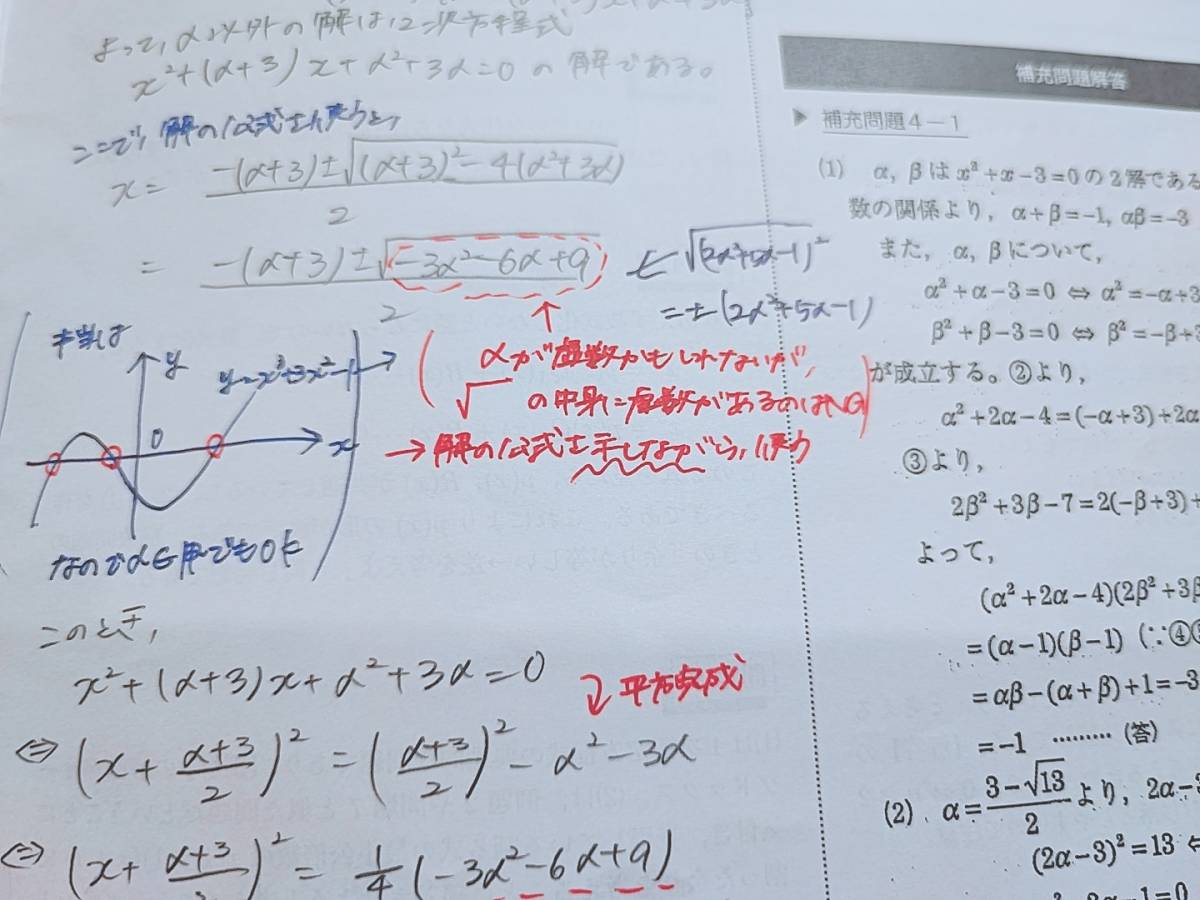 よって, α以外の解は, 2次方程式
x²+(α+3)x+α²+3α=0 の解である。
ここで, 解の公式を使うと,
x= -(α+3)±√(α+3)²-4(α²+3α)
2
= -(α+3)±√-3α²-6α+9
2
←√(2α²+5α-1)²
=±(2α²+5α-1)
本当は
y
y=x³+3x²-1
0
x
なのでα∈Rでもok
αが虚数かもしれないが,
√ の中身に虚数があるのはNG
→解の公式を示しながら, 使う
このとき,
x²+(α+3)x+α²+3α=0
平方完成
⇔ (x+ α+3/2)² = (α+3/2)² - α² - 3α
⇔ (x+ α+3/2)² = 1/4 (-3α²-6α+9)
補充問題解答
▶ 補充問題4-1
(1) α, βはx²+x-3=0の2解である
数の関係より, α+β=-1, αβ=-3
また, α, βについて,
α²+α-3=0 ⇔ α²=-α+3
β²+β-3=0 ⇔ β²=-β+3
が成立する。②より,
α²+2α-4=(-α+3)+2α
③より,
2β²+3β-7=2(-β+3)+
よって,
(α²+2α-4)(2β²+3β
=(α-1)(β-1) (∵④
=αβ-(α+β)+1=-3
=-1 ………(答)
(2) α= 3-√13/2 より, 2α-3
(2α-3)²=13 ⇔